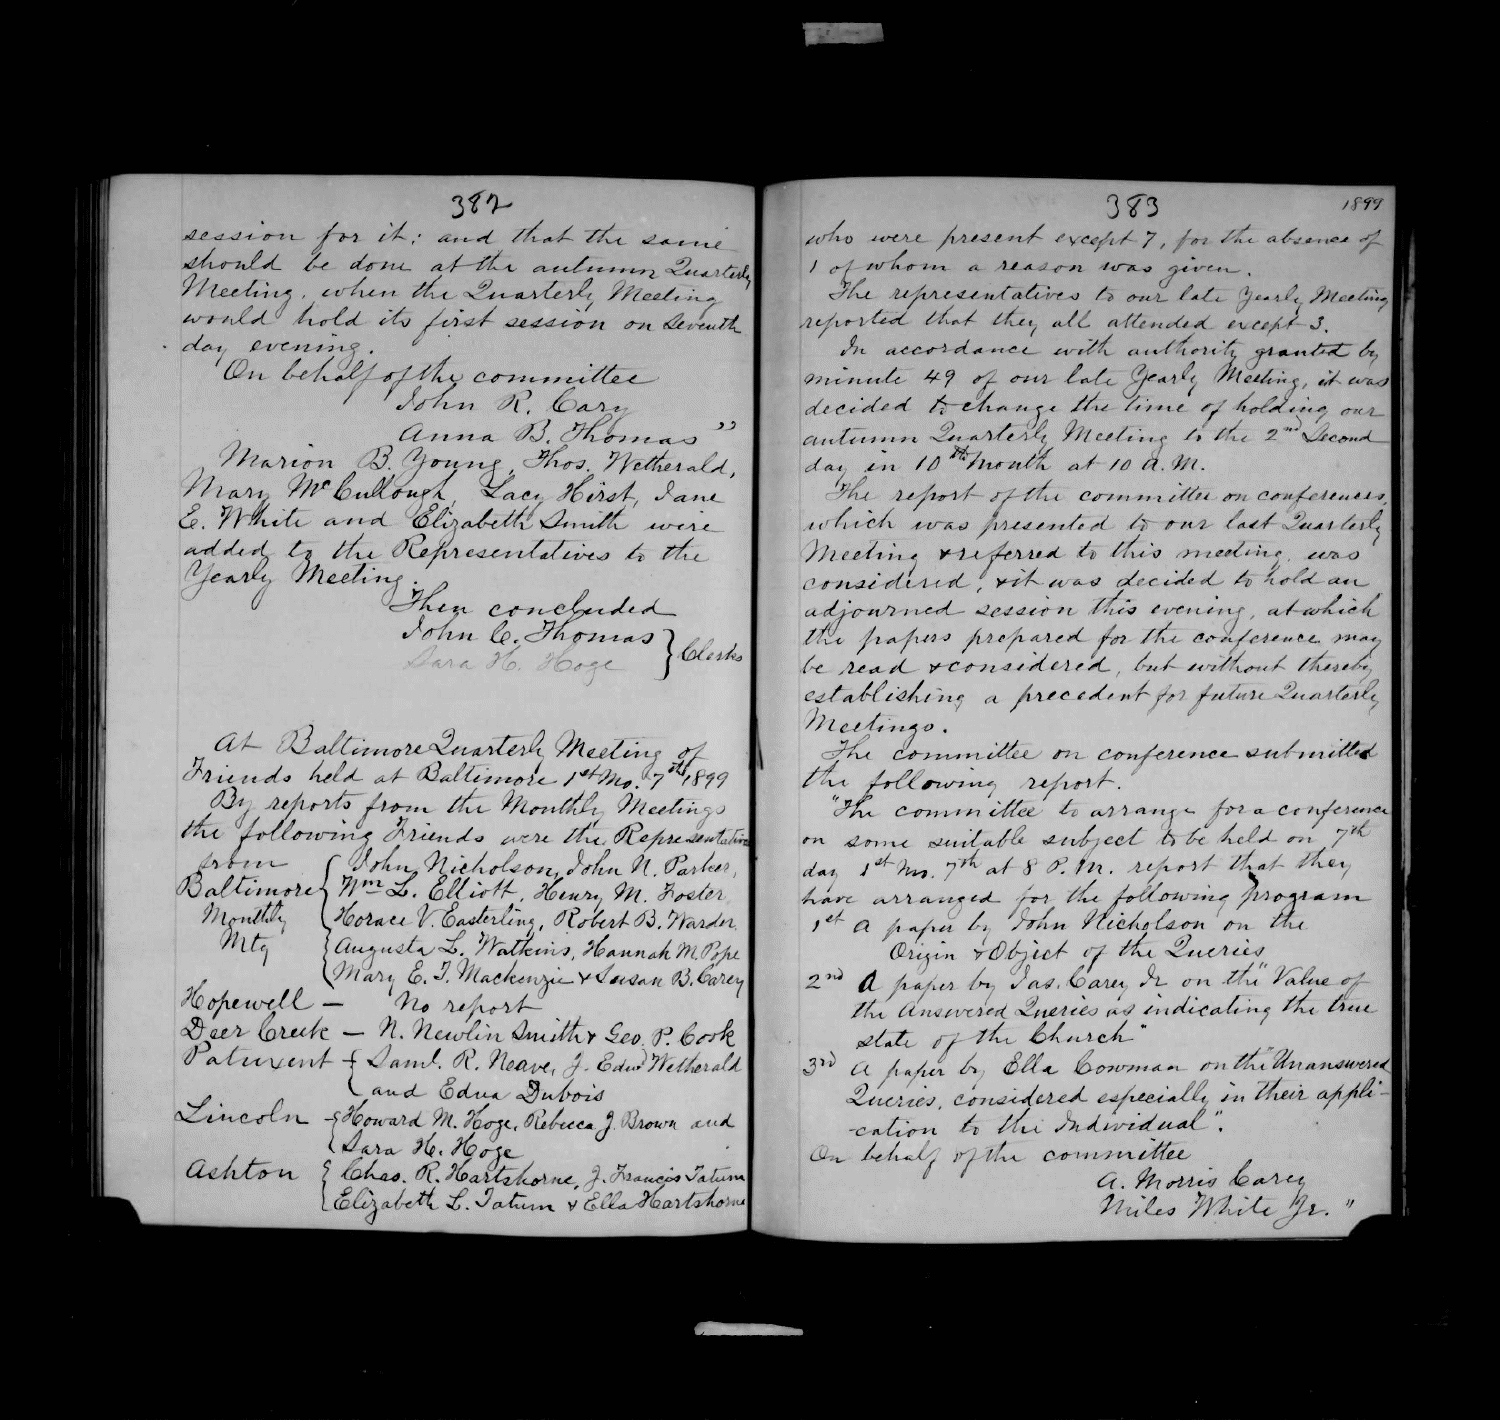 382
session for it; and that the same
should be done at the autumn Quarterly
Meeting, when the Quarterly Meeting
would hold its first session on Seventh
day evening.
On behalf of the committee
John R. Cary
Anna B. Thomas"
Marion B. Young, Thos. Wetherald,
Mary McCullough, Lacy Hirst, Jane
E. White and Elizabeth Smith were
added to the Representatives to the
Yearly Meeting.
Then concluded
John C. Thomas
Sara H. Hoge } Clerks
At Baltimore Quarterly Meeting of
Friends held at Baltimore 1st Mo. 7th 1899
By reports from the Monthly Meetings
the following Friends were the Representatives
from { John Nicholson, John N. Parker,
Baltimore Wm L. Elliott, Henry M. Foster,
Monthly Horace V. Easterling, Robert B. Warder,
Mtg { Augusta L. Watkins, Hannah M. Pope
Mary E. T. Mackenzie & Susan B. Carey
Hopewell — No report
Deer Creek — N. Newlin Smith & Geo. P. Cook
Patuxent { Saml. R. Neave, J. Edwd Wetherald
and Edna Dubois
Lincoln { Howard M. Hoge, Rebecca J. Brown and
Sara H. Hoge
Ashton { Chas. R. Hartshorne, J. Francis Tatum
Elizabeth L. Tatum & Ella Hartshorne
383
1899
who were present except 7, for the absence of
1 of whom a reason was given.
The representatives to our late Yearly Meeting
reported that they all attended except 3.
In accordance with authority granted by
minute 49 of our late Yearly Meeting, it was
decided to change the time of holding our
autumn Quarterly Meeting to the 2nd Second
day in 10th Month at 10 A.M.
The report of the committee on conferences,
which was presented to our last Quarterly
Meeting & referred to this meeting, was
considered, & it was decided to hold an
adjourned session this evening, at which
the papers prepared for the conference may
be read & considered, but without thereby
establishing a precedent for future Quarterly
Meetings.
The committee on conference submitted
the following report.
"The committee to arrange for a conference
on some suitable subject to be held on 7th
day 1st Mo. 7th at 8 P.M. report that they
have arranged for the following program
1st A paper by John Nicholson on the
Origin & Object of the Queries
2nd A paper by Jas. Carey Jr on the "Value of
the Answered Queries as indicating the true
state of the Church"
3rd A paper by Ella Cowman on the "Unanswered
Queries, considered especially in their appli-
-cation to the Individual".
On behalf of the committee
A. Morris Carey
Miles White Jr."